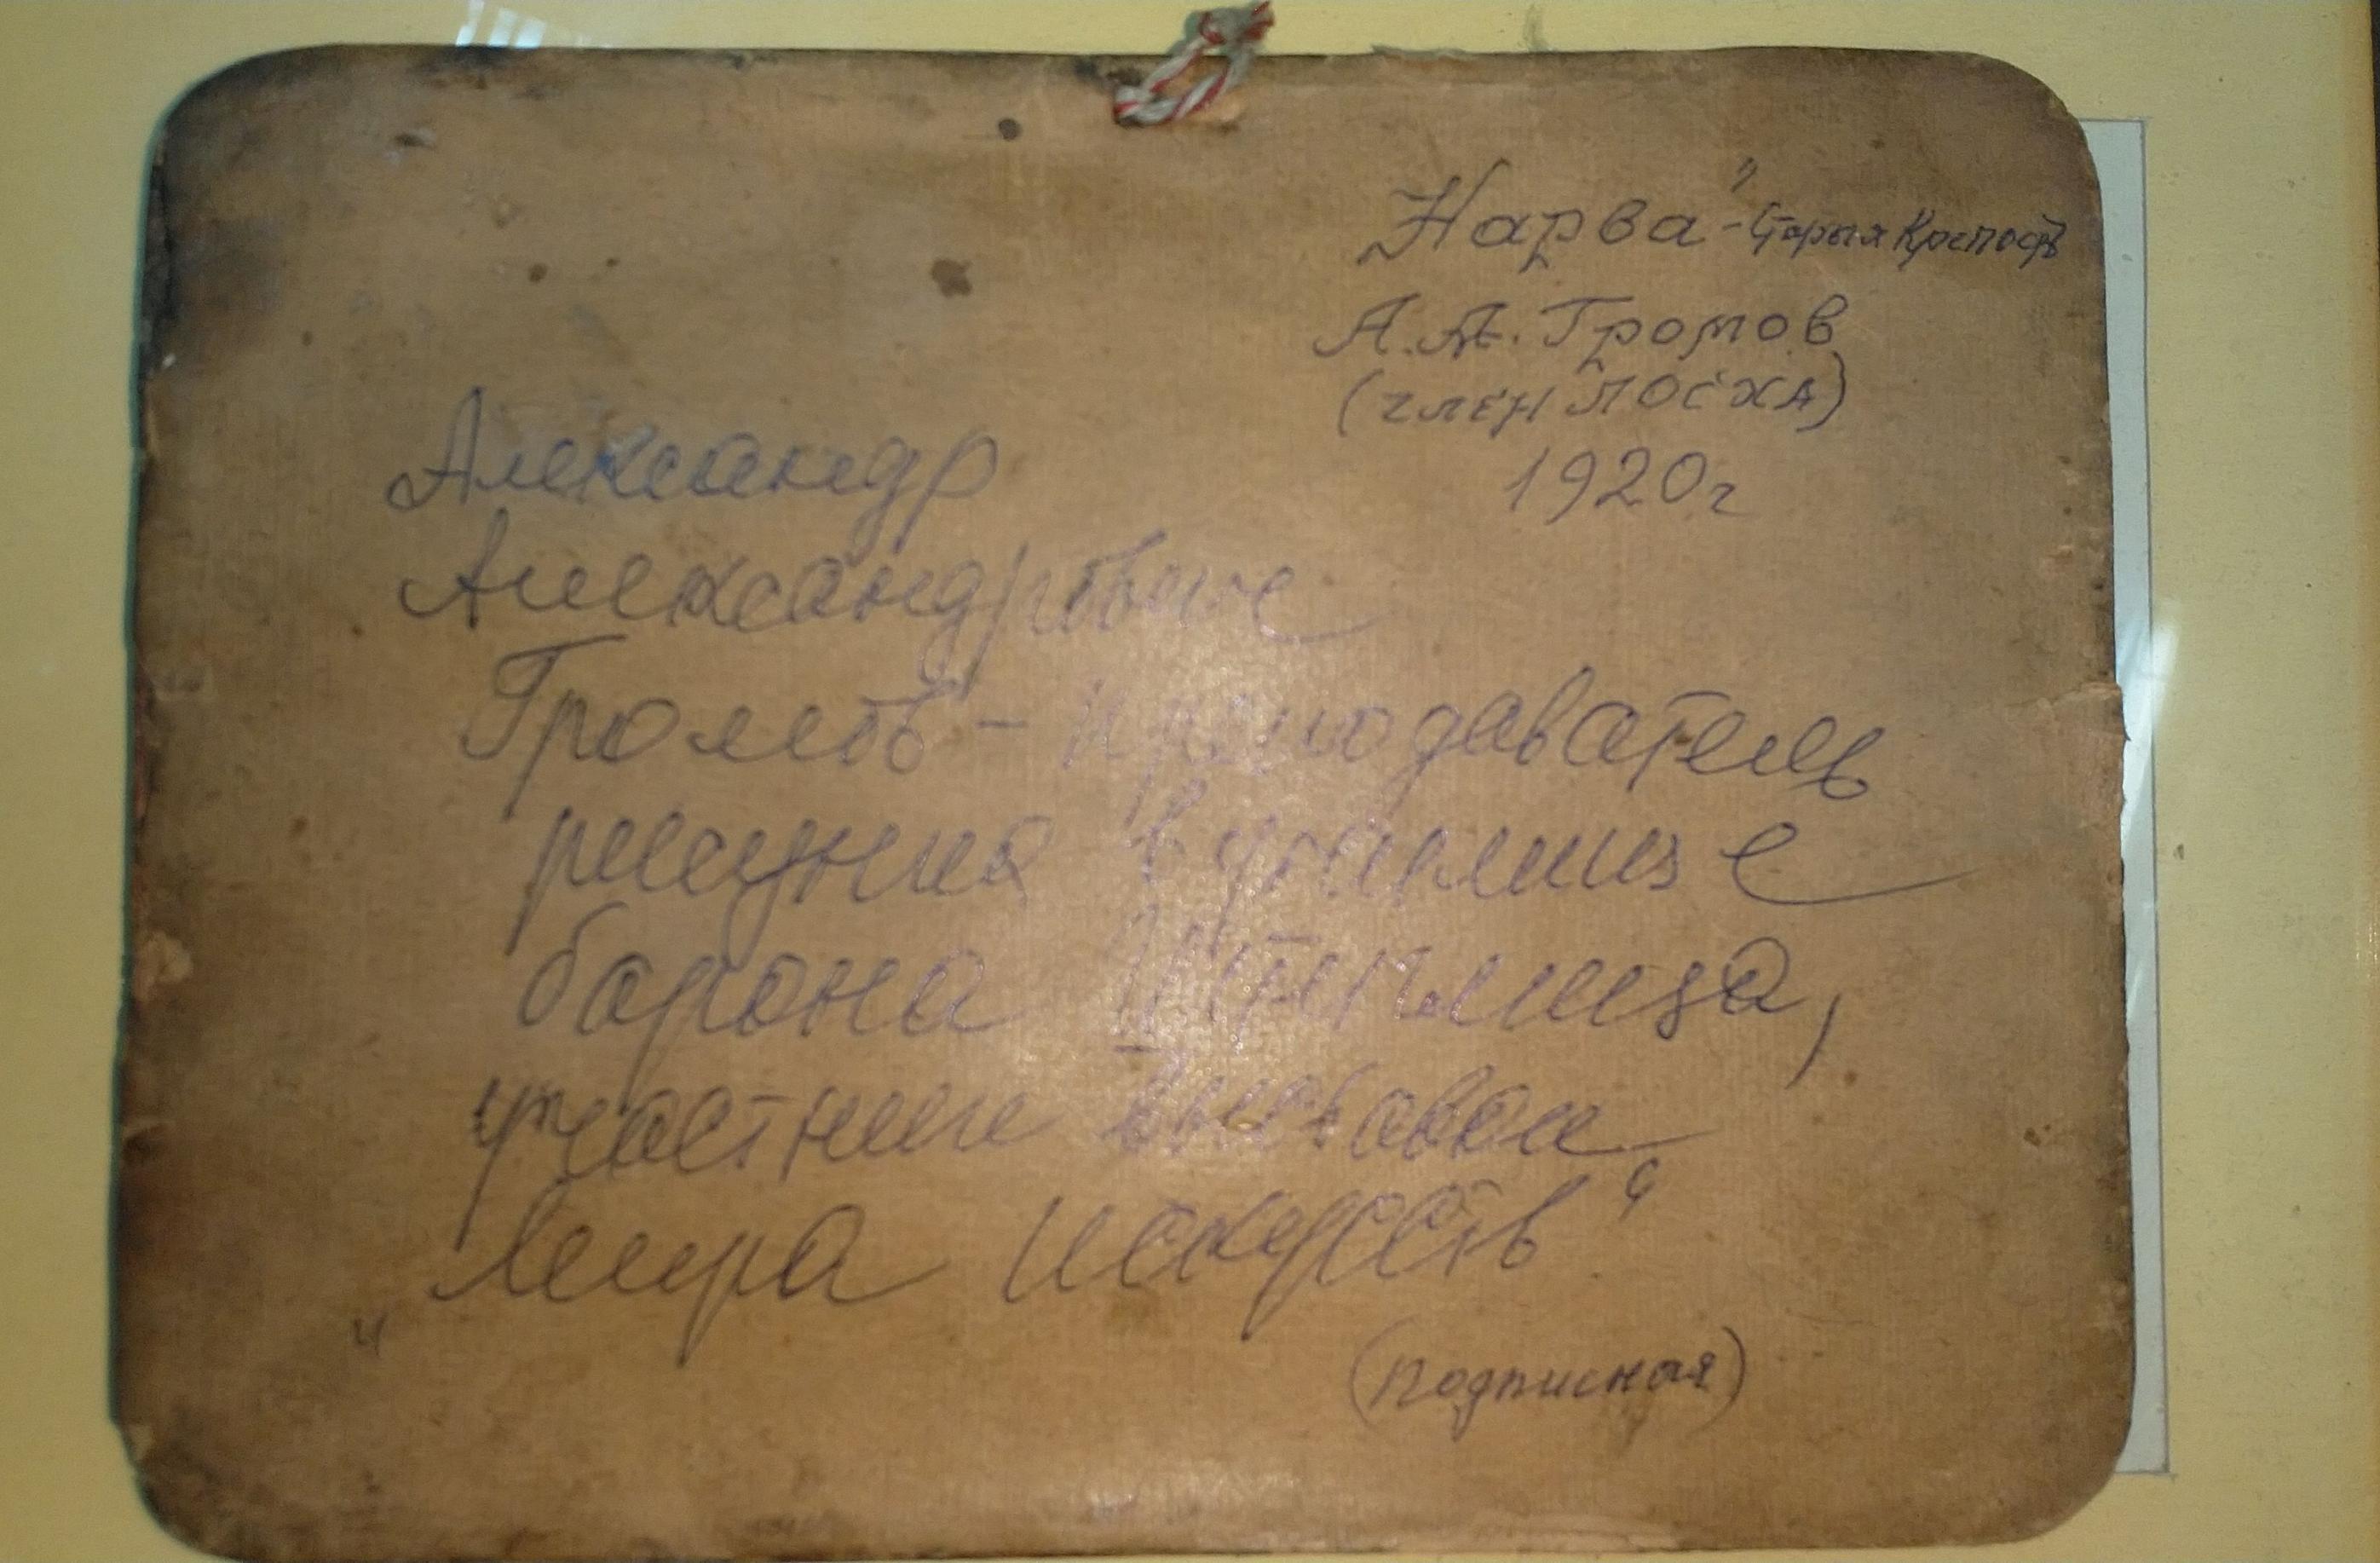 Нарва" - Старыя Крепость
А.А. Громов
(член ЛОСХА)
1920 г
Александр
Александрович
Громов - преподаватель
рисунка в училище
барона Штиглица,
участник выставок
„Мира искусств“
(подписная)